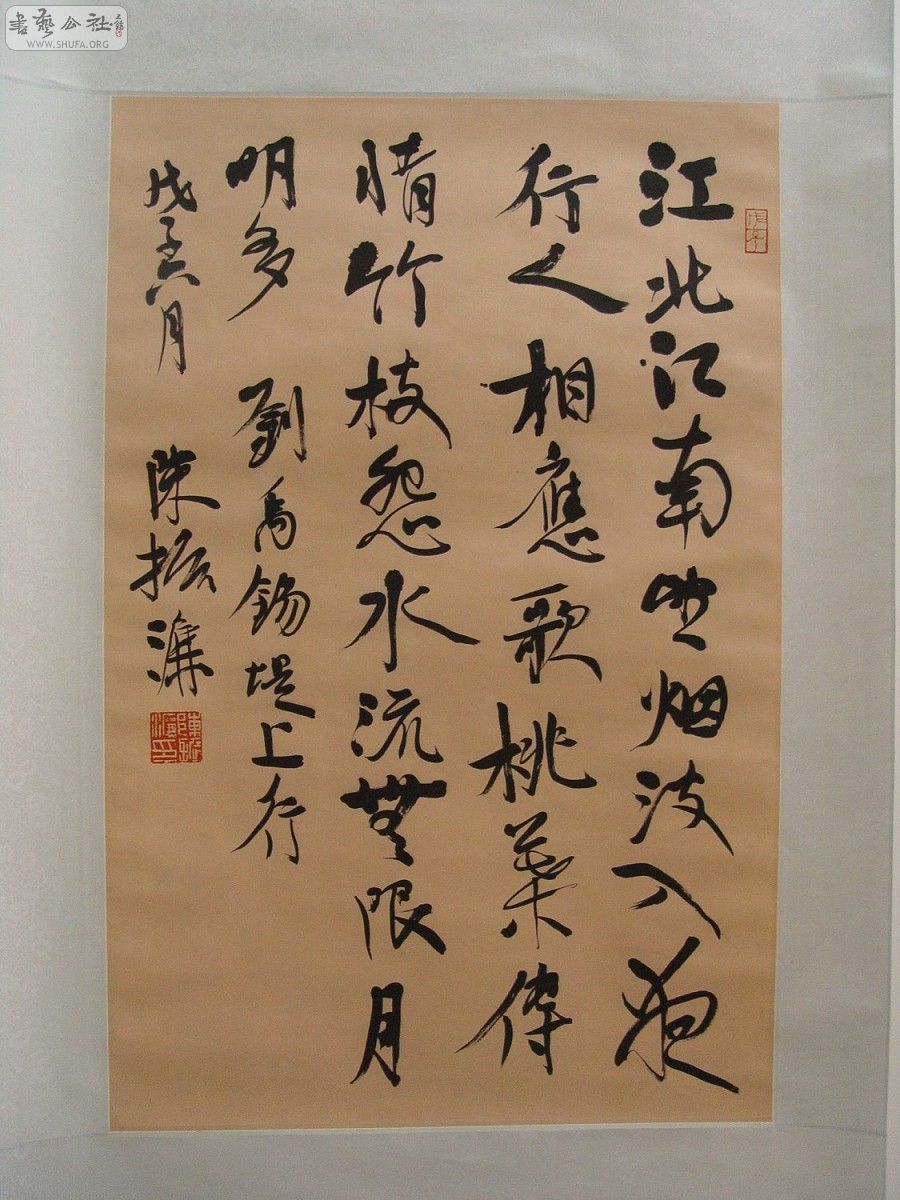 書藝公社
WWW.SHUFA.ORG
戊子
江北江南望烟波入夜
行人相應歌桃葉傳
情竹枝怨水流無限月
明多 劉禹錫堤上行
戊子六月 陳振濂
陳振濂印